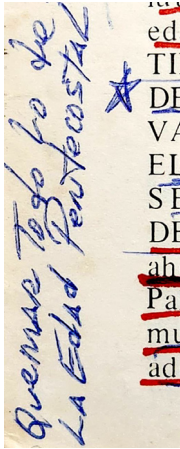 Quemar Todo lo de
La Edad Pentecostal
ed
TI
DE
VA
EL
SE
DE
ah
Pa
mu
ad